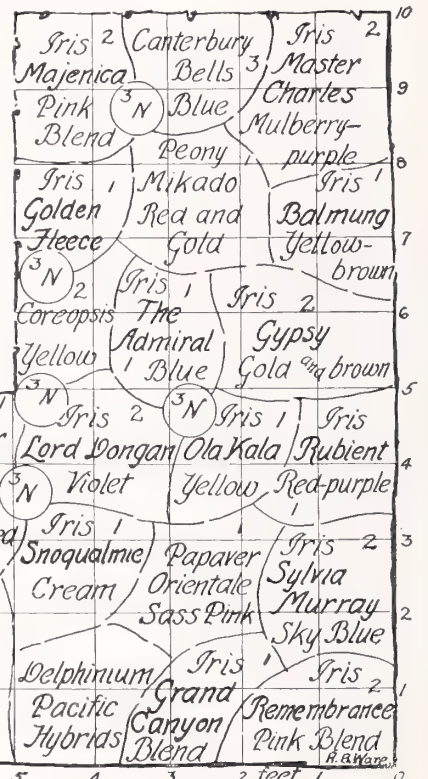 Iris 2
Majenica
Pink
Blend
3
N
Canterbury
Bells 3
Blue
Iris 2
Master
Charles
Mulberry-
purple
Iris 1
Golden
Fleece
3
N
Peony 1
Mikado
Red and
Gold
Iris 1
Balmung
Yellow-
brown
2
Coreopsis
Yellow
Iris 1
The
Admiral
Blue
1
Iris 2
Gypsy
Gold and brown
3
N
Iris 2
Lord Dongan
Violet
3
N
Iris 1
Ola Kala
Yellow
Iris
Rubient
Red-purple
1
3
N
Iris 1
Snoqualmie
Cream
Papaver 1
Orientale
Sass Pink
Iris 2
Sylvia
Murray
Sky Blue
Delphinium
Pacific
Hybrids
Iris 1
Grand
Canyon
Blend
Iris
2
Remembrance
Pink Blend
R.B.Ware
10
9
8
7
6
5
4
3
2
1
0
5 4 3 2 feet